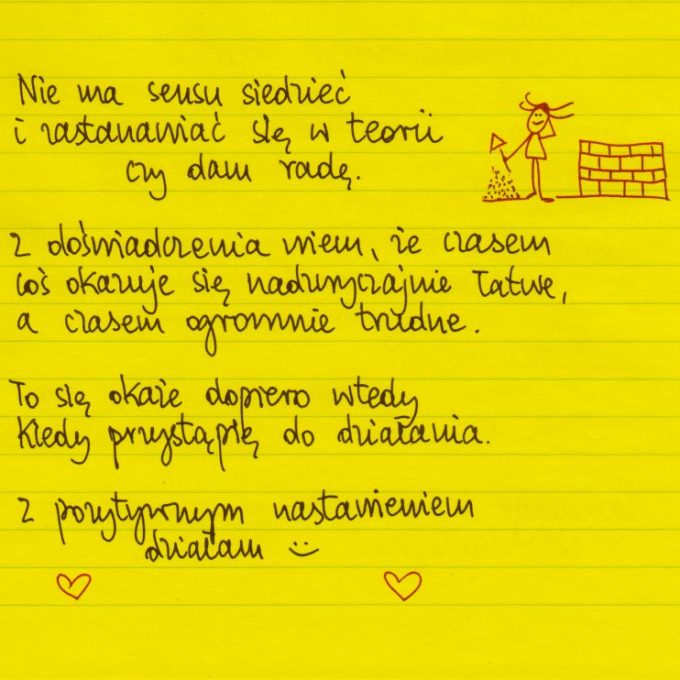 Nie ma sensu siedzieć
i zastanawiać się w teorii
czy dam radę.
Z doświadczenia wiem, że czasem
coś okazuje się nadzwyczajnie łatwe,
a czasem ogromnie trudne.
To się okaże dopiero wtedy
kiedy przystąpię do działania.
Z pozytywnym nastawieniem
działam :)